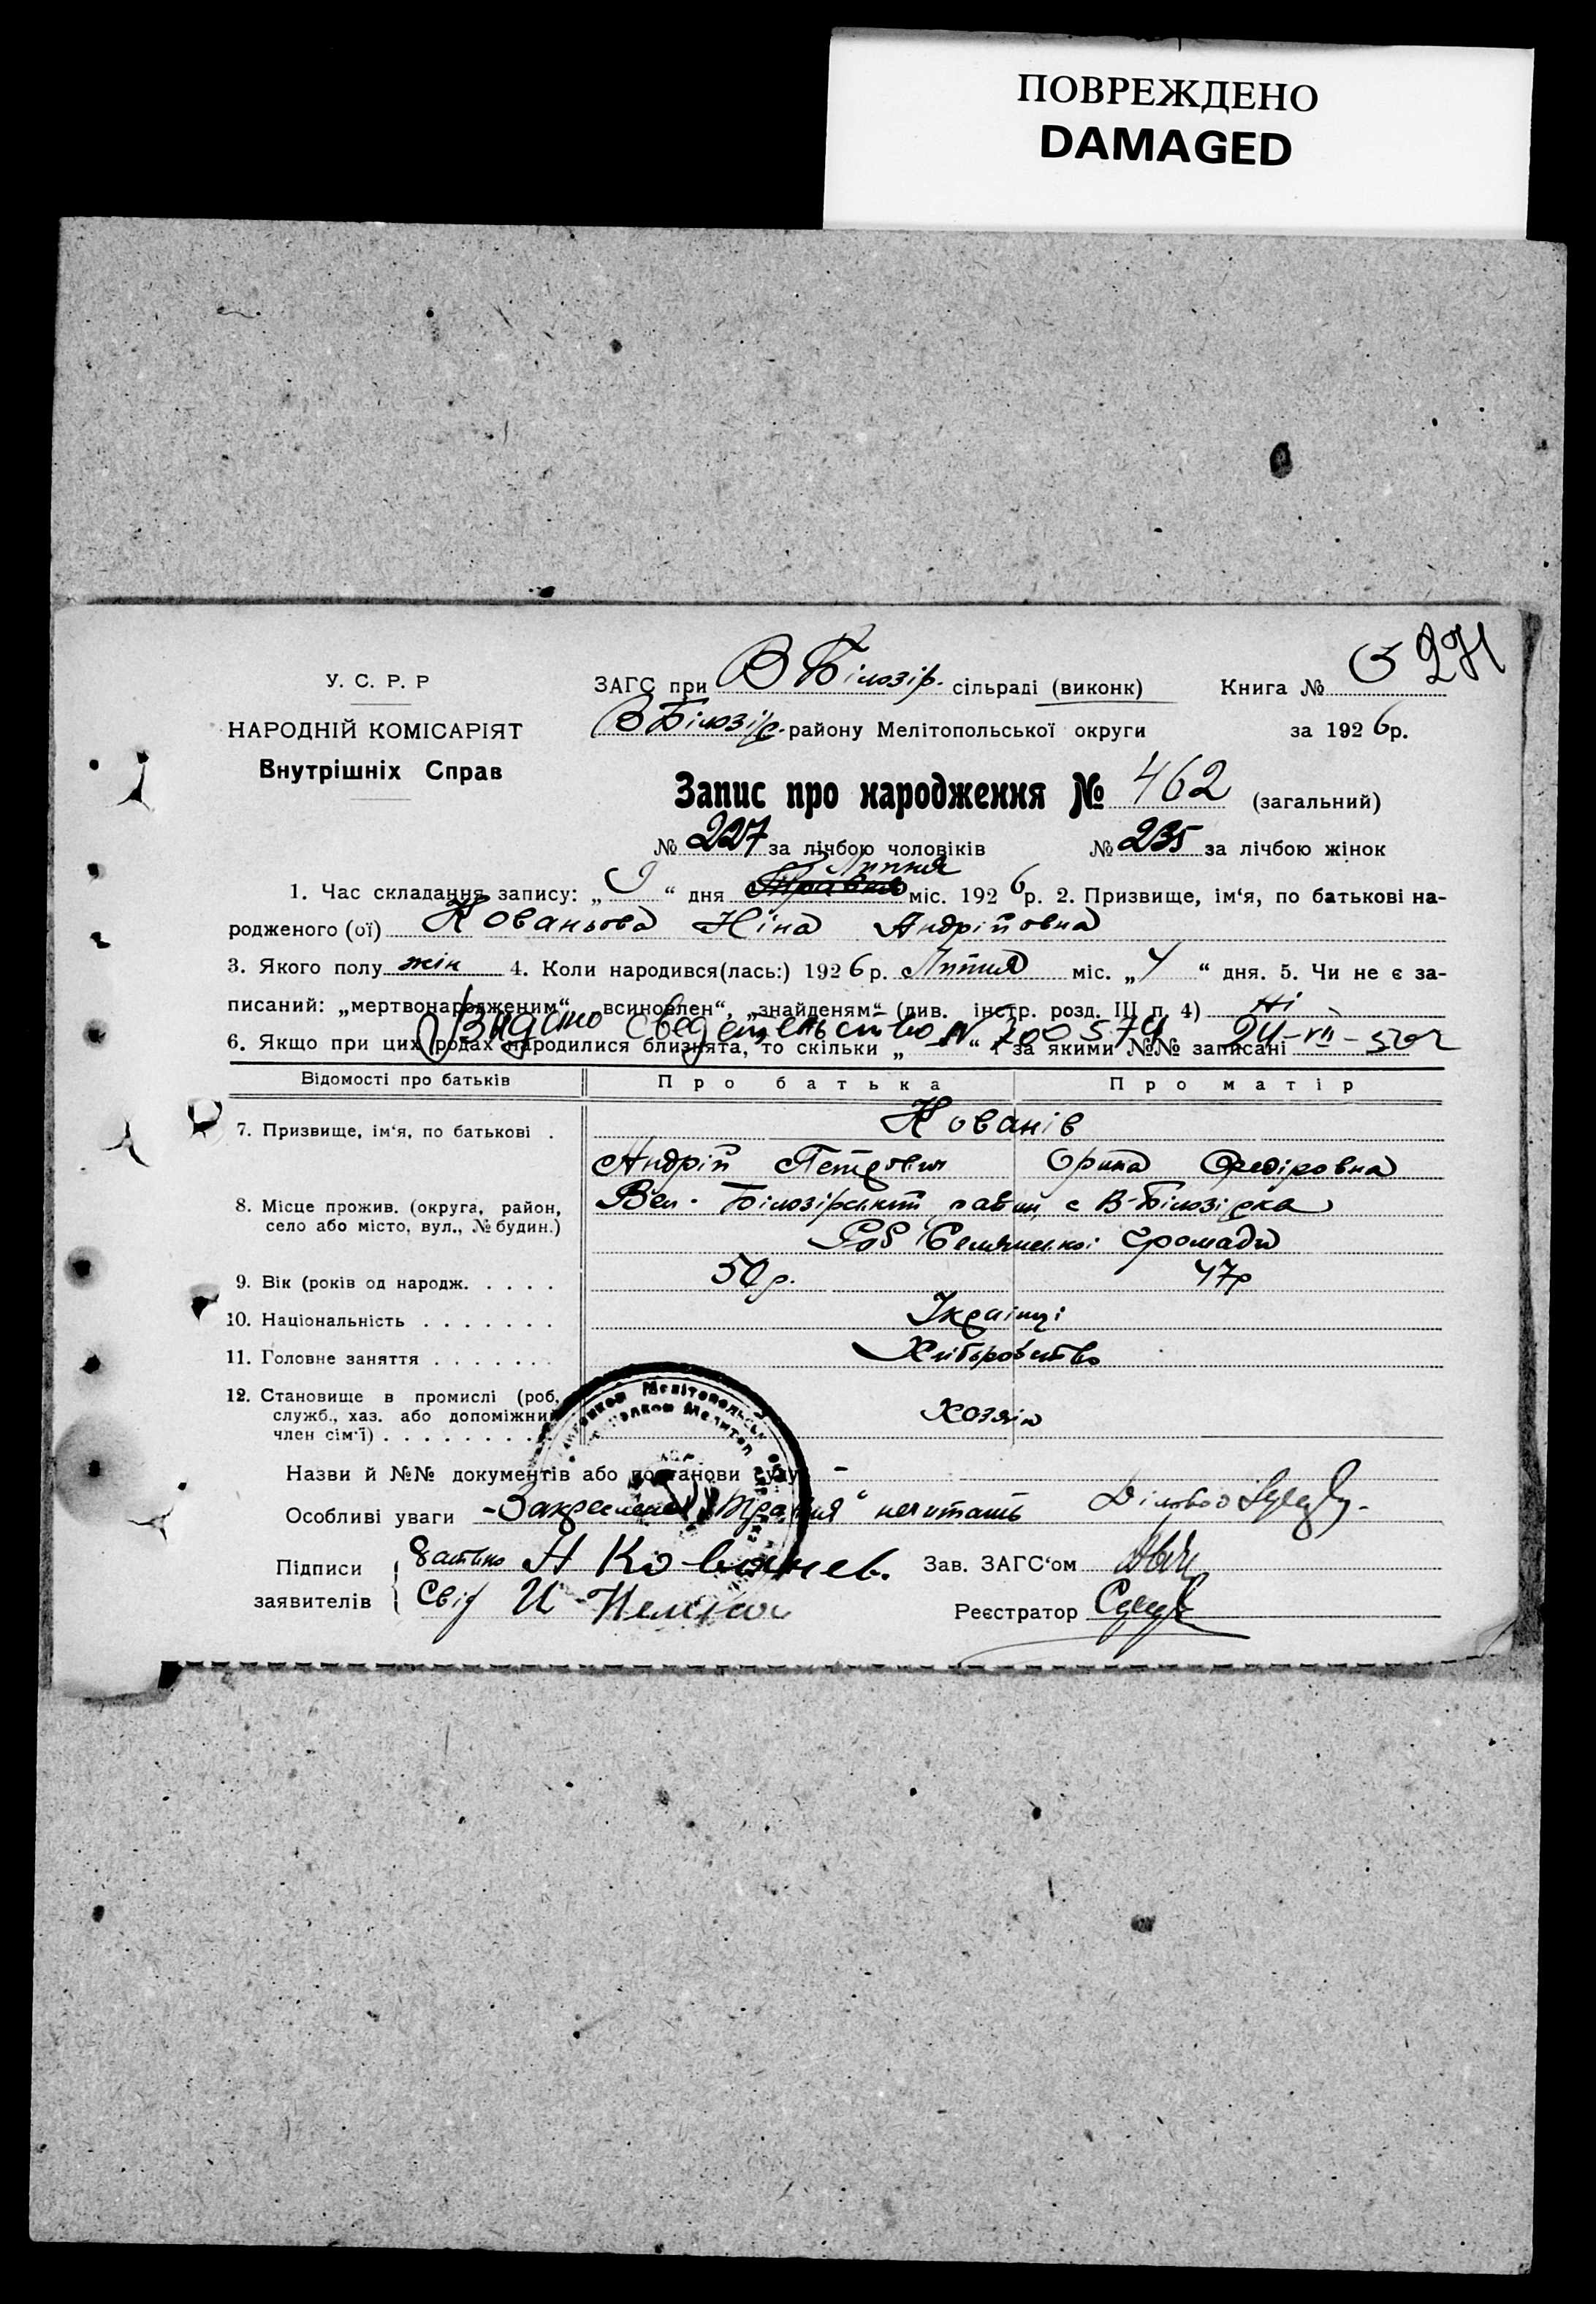 ПОВРЕЖДЕНО
DAMAGED
У. С. Р. Р
НАРОДНІЙ КОМІСАРІЯТ
Внутрішніх Справ
ЗАГС при В Білозір. сільраді (виконк) Книга № 5
В Білозір. району Мелітопольської округи за 1926 р.
Запис про народження № 462 (загальний)
№ 227 за лічбою чоловіків № 235 за лічбою жінок
Липня
1. Час складання запису: „ “ дня Травня міс. 1926 р. 2. Призвище, ім‘я, по батькові на-
родженого (ої) Кованьова Ніна Андрійовна
3. Якого полу жін 4. Коли народився(лась:) 1926 р. Липня міс. „ “ дня. 5. Чи не є за-
писаний: „мертвонародженим“ „всиновлен“, „знайденям“ (див. інстр. розд. III п. 4) Ні
Видано сведетельство N
6. Якщо при цих родах народилися близнята, то скільки „ “ і за якими №№ записані
Відомості про батьків Про батька Про матір
7. Призвище, ім‘я, по батькові . Кованів
Андрій Петрович Орина Федіровна
8. Місце прожив. (округа, район, село або місто, вул., № будин.) Вел. Білозірський район с В-Білозірка
Селянської Громади
9. Вік (років од народж. . . . . 50 р. 47р
10. Національність . . . . . . . Українці
11. Головне заняття . . . . . . . Хліборобство
12. Становище в промислі (роб. служб., хаз. або допоміжний член сім‘ї) . . . . . . . . Хозяін
Назви й №№ документів або постанови суду –
Особливі уваги – Закреслене „Травня“ не читать
Підписи заявителів батько А Кованев. Зав. ЗАГС‘ом
Свід И Реєстратор